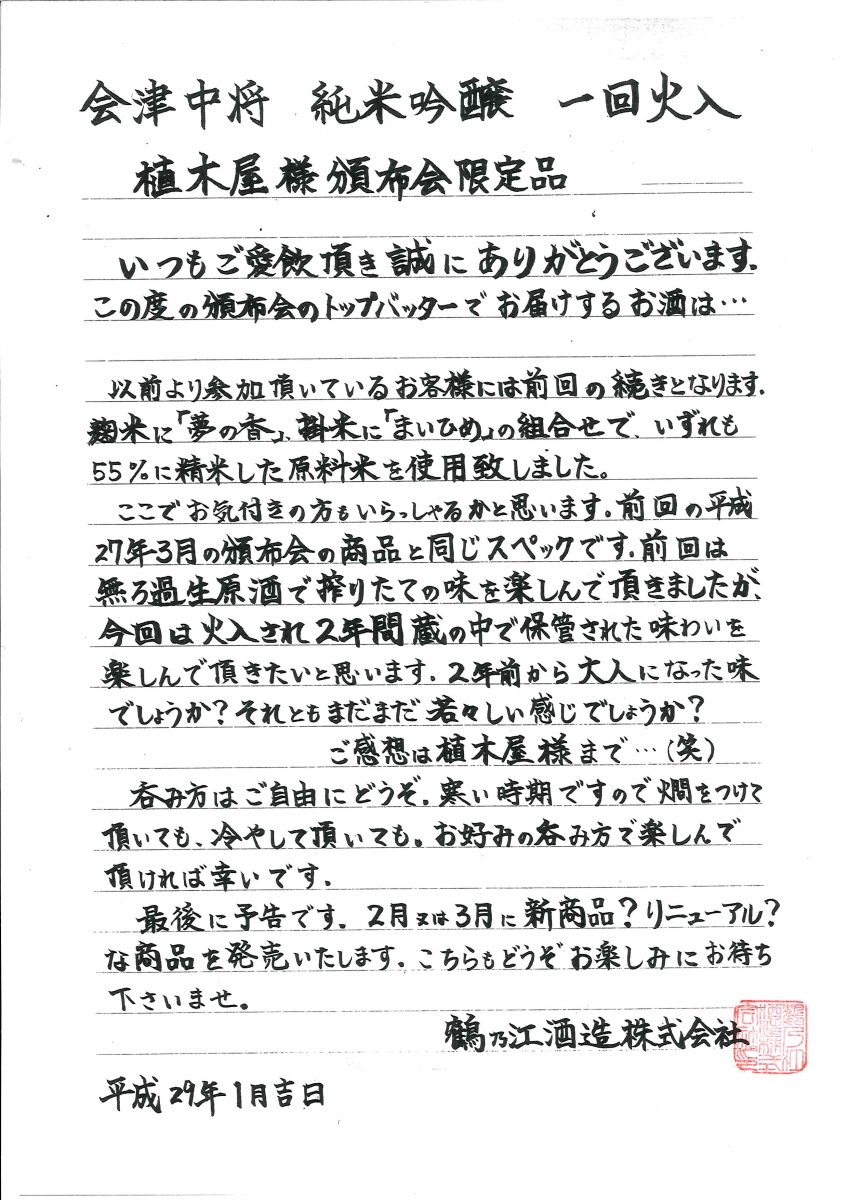 会津中将 純米吟醸 一回火入
植木屋様頒布会限定品
いつもご愛飲頂き誠にありがとうございます。
この度の頒布会のトップバッターでお届けするお酒は…
以前より参加頂いているお客様には前回の続きとなります。
麹米に「夢の香」、掛米に「まいひめ」の組合せで、いずれも
55%に精米した原料米を使用致しました。
ここでお気付きの方もいらっしゃるかと思います。前回の平成
27年3月の頒布会の商品と同じスペックです。前回は
無ろ過生原酒で搾りたての味を楽しんで頂きましたが、
今回は火入され2年間蔵の中で保管された味わいを
楽しんで頂きたいと思います。2年前から大人になった味
でしょうか?それともまだまだ若々しい感じでしょうか?
ご感想は植木屋様まで…(笑)
呑み方はご自由にどうぞ。寒い時期ですので燗をつけて
頂いても、冷やして頂いても。お好みの呑み方で楽しんで
頂ければ幸いです。
最後に予告です。2月又は3月に新商品?リニューアル?
な商品を発売いたします。こちらもどうぞお楽しみにお待ち
下さいませ。
鶴乃江酒造株式会社
平成29年1月吉日